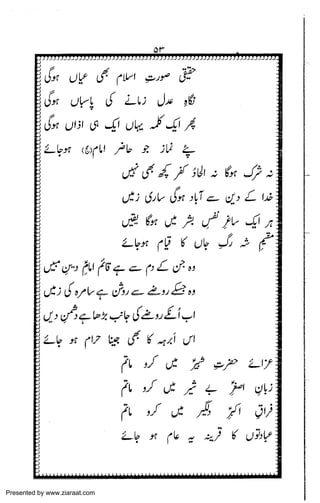 ۵۳
حقیقی صورتِ اسلام بھی عیاں ہوگی
نگاہِ عدل زمانے کی پاسباں ہوگی
پھر ایک کلمہ یہاں ایک ہی اذاں ہوگی
پئے نماز جو حاضر امام(ع) ہوجائے
نہ شرک ہوگا نہ الحاد و کفر کچھ بھی نہیں
خدا کے دین سے آباد ہوگی ساری زمیں
ہر ایک ساغرِ نفسِ بشر میں ہوگا یقیں
مقیمِ شہ رگِ جاں کا قیام ہوجائے
وہ جن کے دم سے ہے قائم امامؑ دینِ مبیں
وہ جسکے روضے سے روشن ہے سامرہ کی زمیں
اب اُنکے روضے کی جانب بڑھا ہے دشمنِ دیں
اس ابرہہ کا بھی جینا حرام ہو جائے
عزائے حضرتِ شبیرؑ میں کرو ماتم
زبانِ اصغرؑ بے شیر میں کرو ماتم
فراقِ اکبرؑ دلگیر میں کرو ماتم
عبادتوں کا قرینہ یہ عام ہو جائے
Presented by www.ziaraat.com